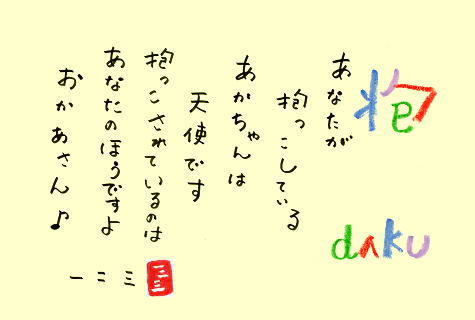 抱
daku
あなたが
抱っこしている
あかちゃんは
天使です
抱っこされているのは
あなたのほうですよ
おかあさん♪
一二三